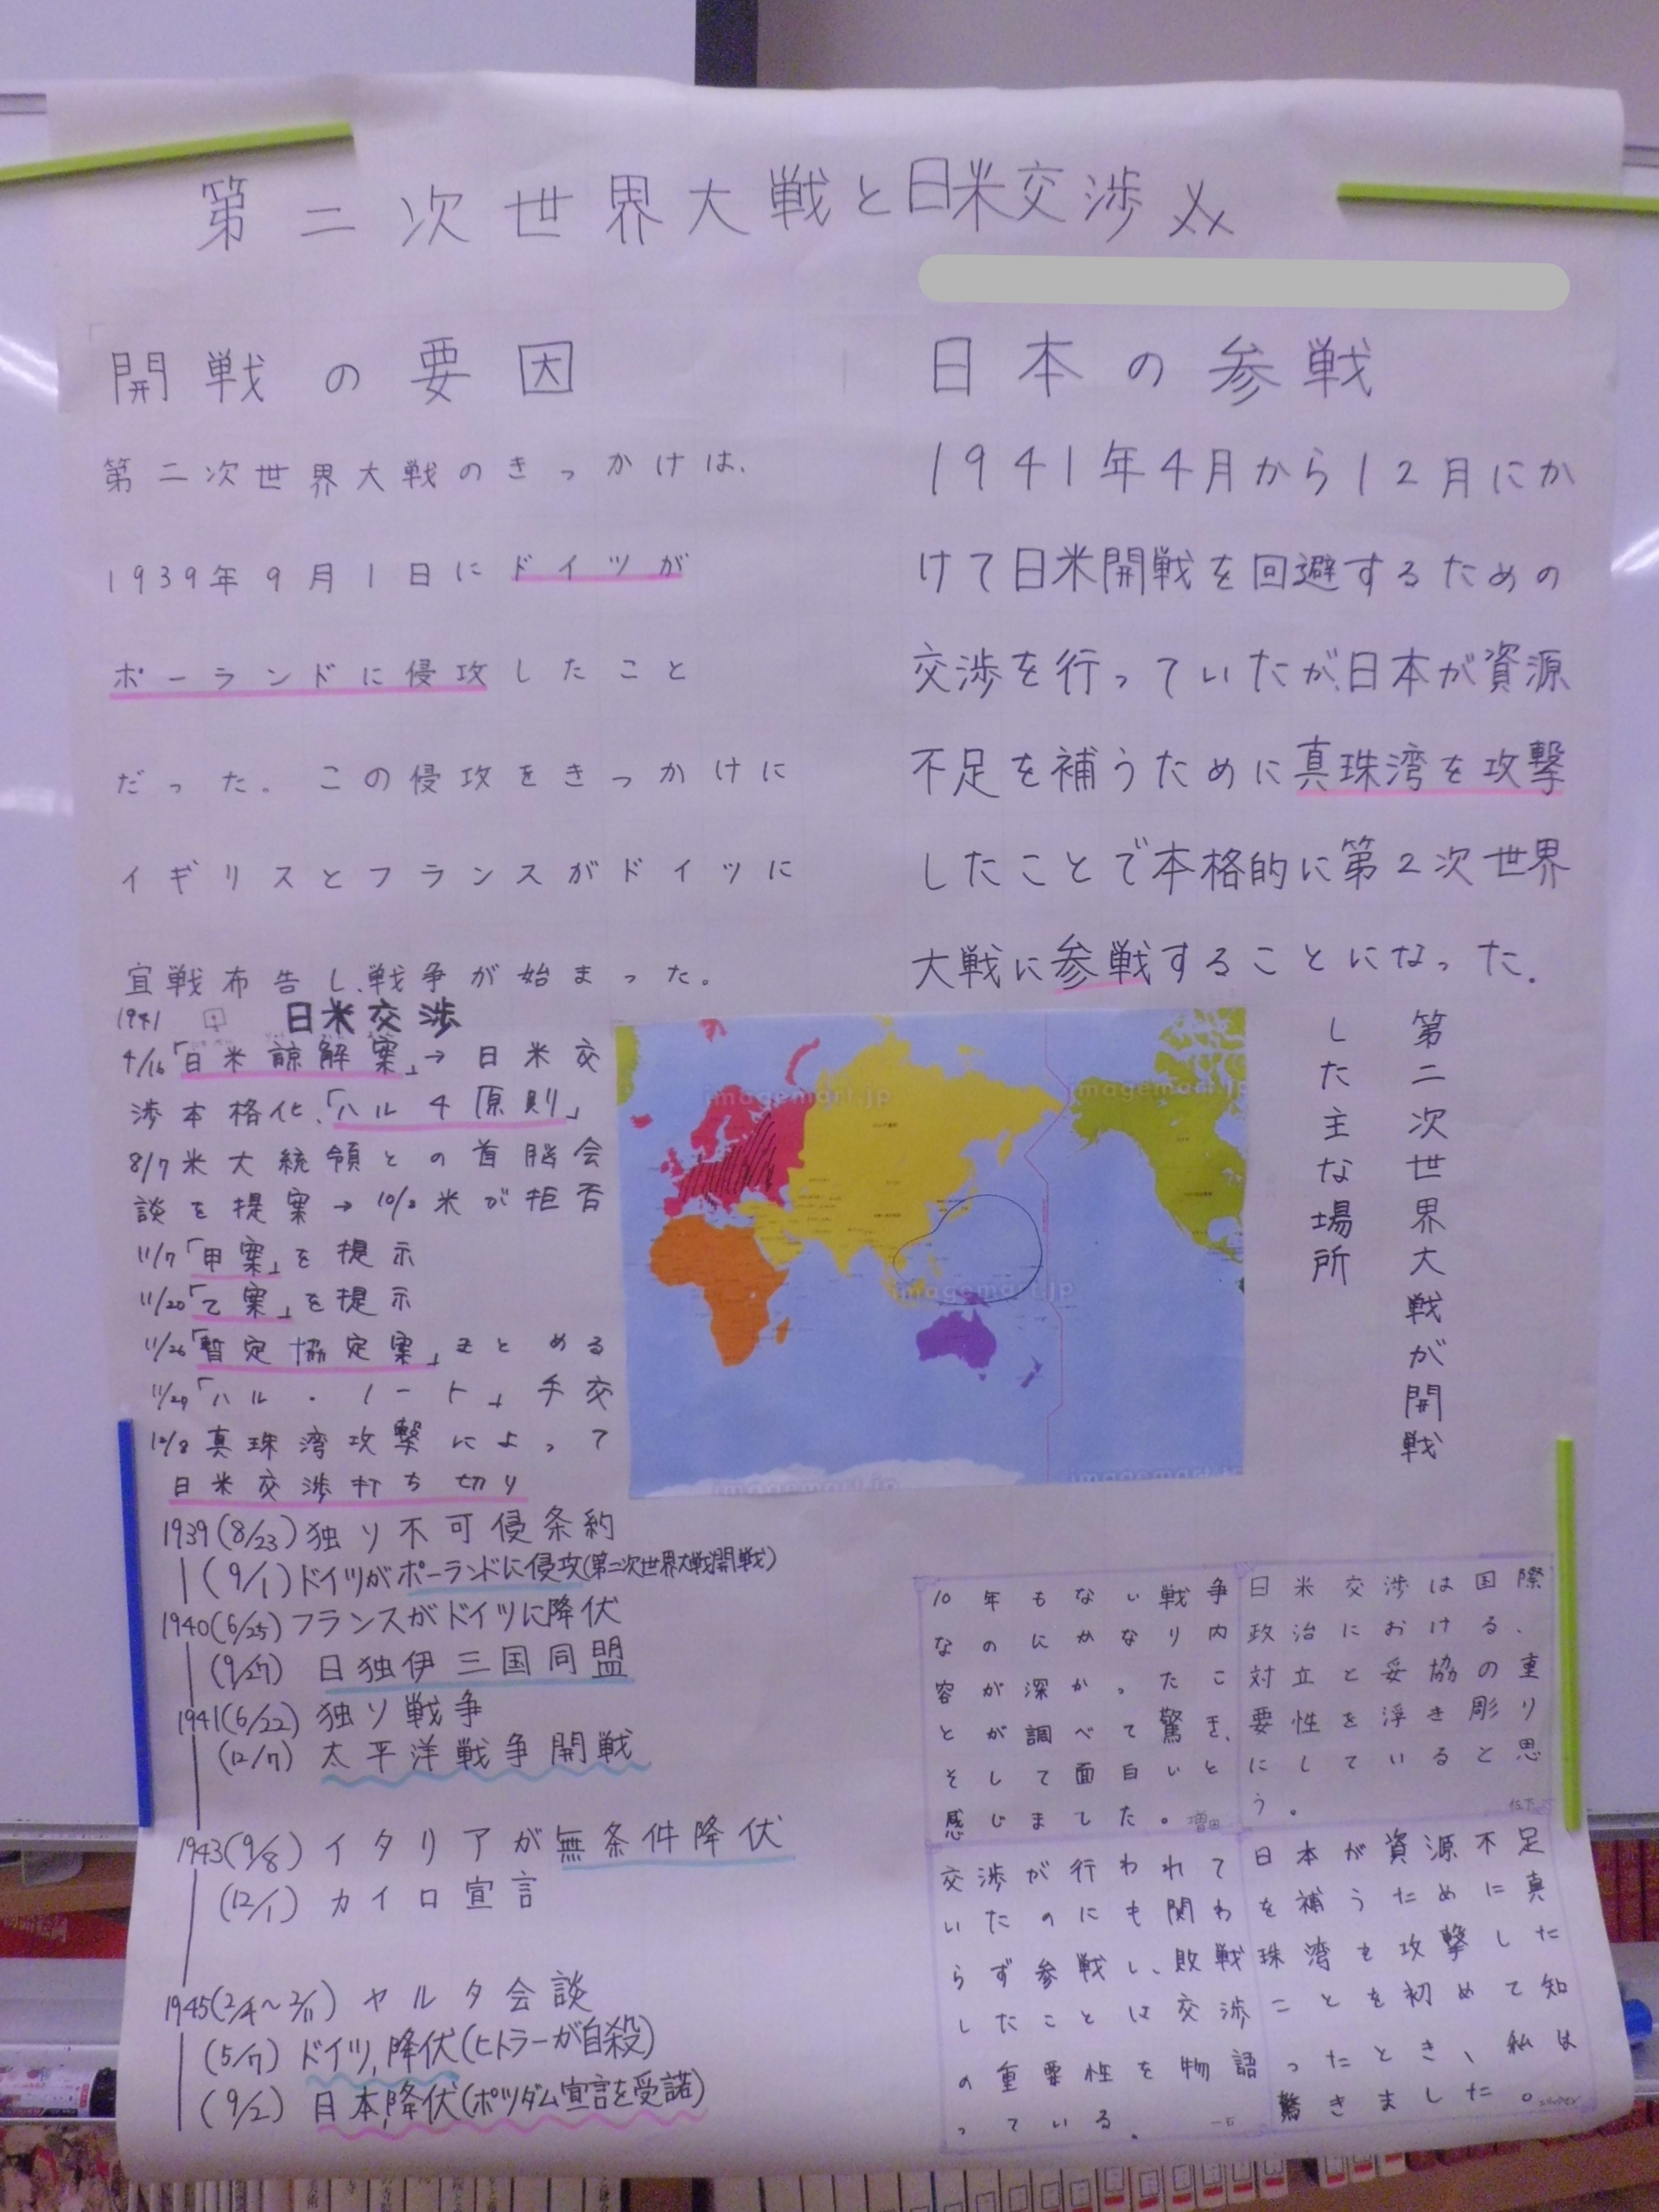 第二次世界大戦と日米交渉
開戦の要因
第二次世界大戦のきっかけは、
1939年9月1日にドイツが
ポーランドに侵攻したこと
だった。この侵攻をきっかけに
イギリスとフランスがドイツに
宣戦布告し、戦争が始まった。
日本の参戦
1941年4月から12月にか
けて日米開戦を回避するための
交渉を行っていたが、日本が資源
不足を補うために真珠湾を攻撃
したことで本格的に第2次世界
大戦に参戦することになった。
1941 日米交渉
4/16「日米諒解案」→日米交
渉本格化、「ハル4原則」
8/7米大統領との首脳会
談を提案→10/2米が拒否
11/7「甲案」を提示
11/20「乙案」を提示
11/26「暫定協定案」まとめる
「ハル・ノート」手交
12/8真珠湾攻撃によって
日米交渉打ち切り
第二次世界大戦が開戦
した主な場所
imagemart.jp
imagemart.jp
imagemart.jp
imagemart.jp
imagemart.jp
1939(8/23)独ソ不可侵条約
(9/1)ドイツがポーランドに侵攻(第二次世界大戦開戦)
1940(6/25)フランスがドイツに降伏
(9/27)日独伊三国同盟
1941(6/22)独ソ戦争
(12/7)太平洋戦争開戦
1943(9/8)イタリアが無条件降伏
(12/1)カイロ宣言
1945(2/4~2/11)ヤルタ会談
(5/7)ドイツ,降伏(ヒトラーが自殺)
(9/2)日本,降伏(ポツダム宣言を受諾)
10年もない戦争
なのにかなり内
容が深かったこ
とが調べて驚き、
そして面白いと
感じました。増田
日米交渉は国際
政治における、
対立と妥協の重
要性を浮き彫り
にしていると思
う。
交渉が行われて
いたのにも関わ
らず参戦し、敗戦
したことは交渉
の重要性を物語
っている。
日本が資源不足
を補うために真
珠湾を攻撃した
ことを初めて知
ったとき、私は
驚きました。